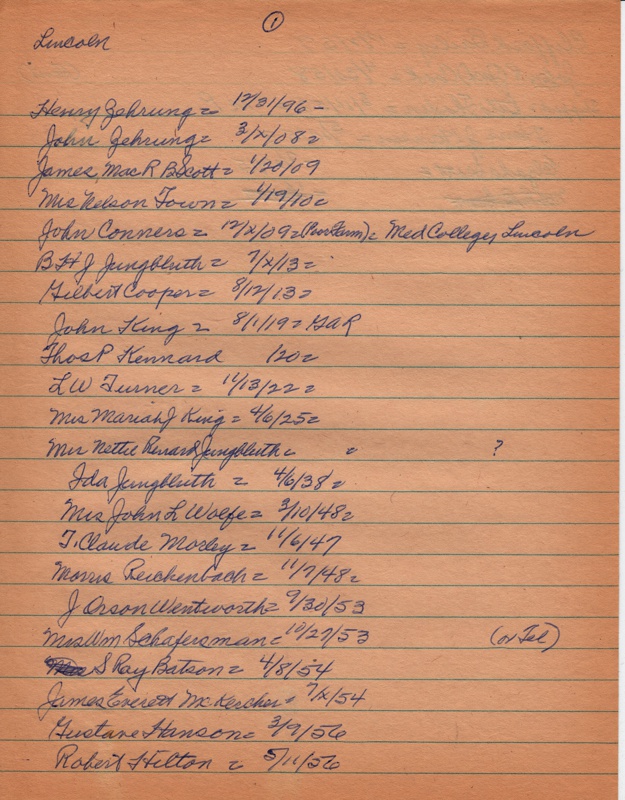 ①
Lincoln
Henry Zehrung = 12/31/96 -
John Zehrung = 3/x/08 =
James Mac R BScott = 1/20/09
Mrs Nelson Town = 4/19/10 =
John Conners = 12/x/09 = (Poor Farm) = Med College, Lincoln
B H J Jungbluth = 7/x/13 =
Gilbert Cooper = 8/12/13 =
John King = 8/1/19 = GAR
Thos P Kennard 120 =
L W Turner = 11/13/22 =
Mrs Mariah J King = 4/6/25 =
Mrs Nettie Jungbluth = = ?
Ida Jungbluth = 4/6/38 =
Mrs John L Wolfe = 3/10/48 =
T. Claude Morley = 11/6/47
Morris Reichenbach = 11/7/48 =
J Orson Wentworth = 9/30/53
Mrs Wm Schafersman = 10/27/53 (or Tel)
S Ray Batson = 4/8/54
James Everett McKercher = 7/x/54
Gustave Hanson = 3/9/56
Robert Hilton = 5/11/56